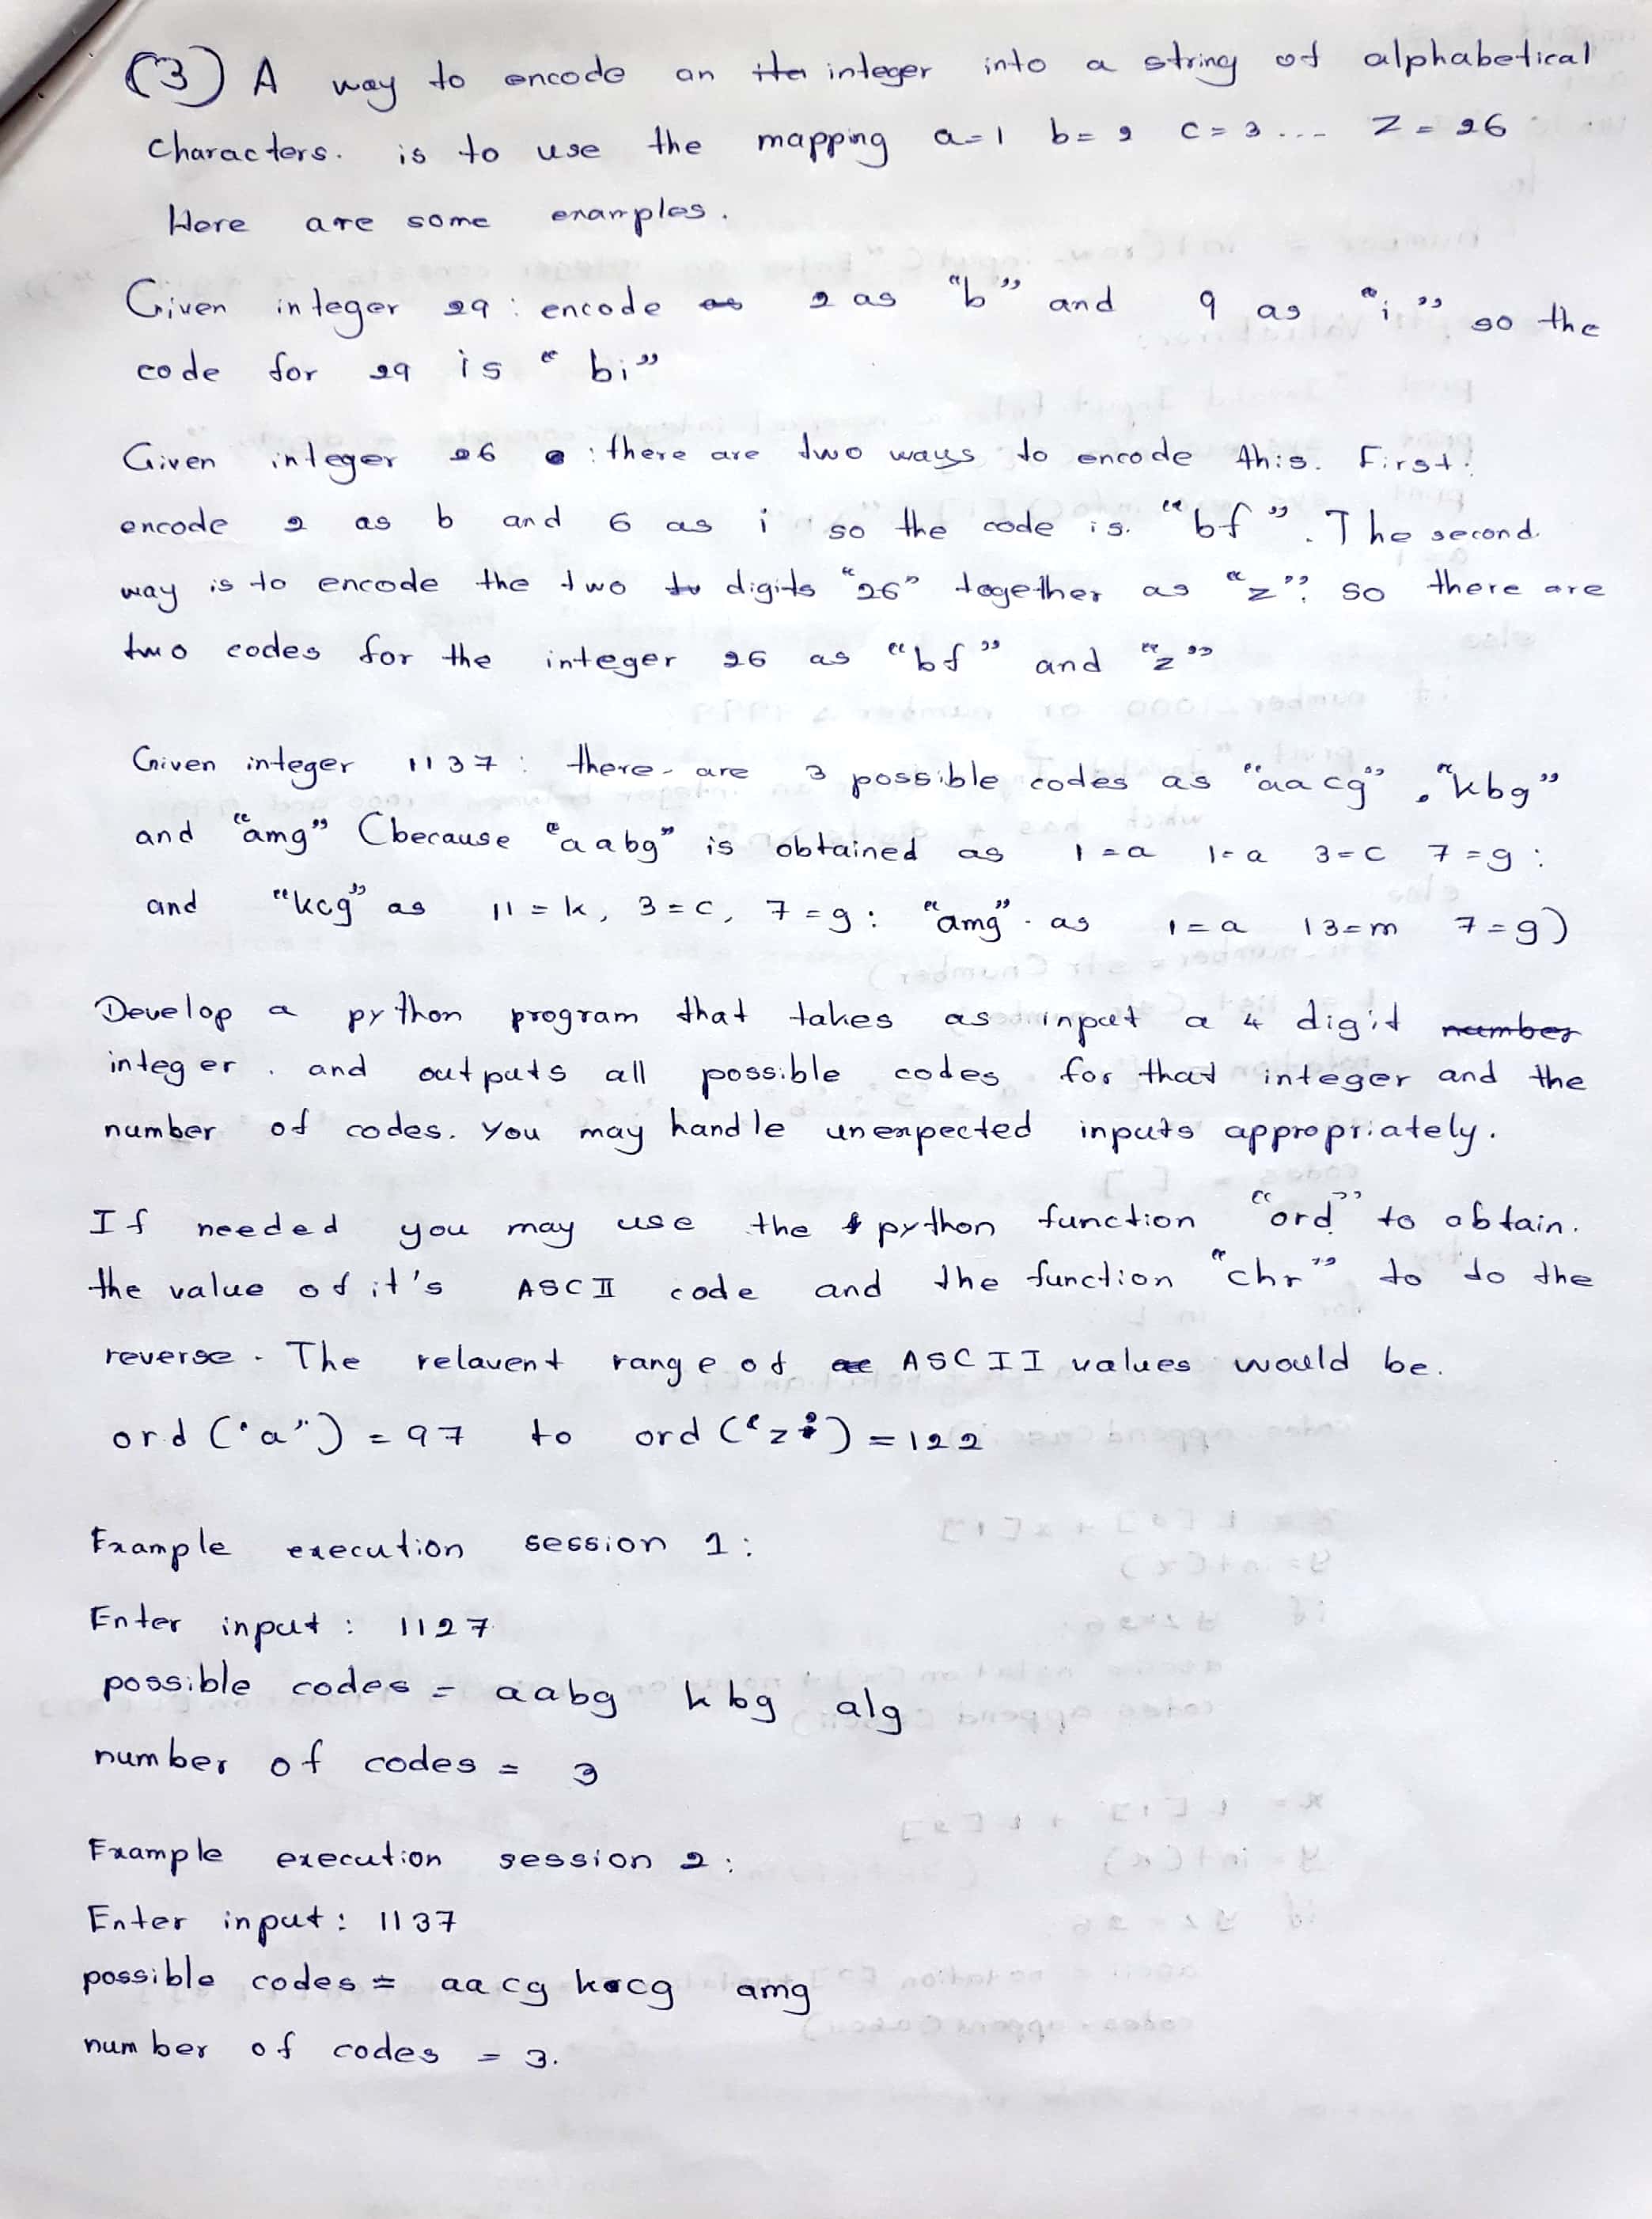 (3) A way to encode an integer into a string of alphabetical
characters. is to use the mapping a=1 b=2 c=3 --- Z=26
Here are some examples.
Given integer 29 : encode as 2 as "b" and 9 as "i" so the
code for 29 is "bi"
Given integer 26 : there are two ways to encode this. First.
encode 2 as b and 6 as i so the code is. "bf". The second.
way is to encode the two digits "26" together as "z". so there are
two codes for the integer 26 as "bf" and "z"
Given integer 1137 : there are 3 possible codes as "aacg", "kbg"
and "amg" (because "aabg" is obtained as 1=a 1=a 3=c 7=g :
and "kcg" as 11=k, 3=c, 7=g : "amg" as 1=a 13=m 7=g)
Develop a python program that takes as input a 4 digit number
integer . and outputs all possible codes for that integer and the
number of codes. You may handle unexpected inputs appropriately.
If needed you may use the python function "ord" to obtain.
the value of it's ASCII code and the function "chr" to do the
reverse. The relavent range of ASCII values would be.
ord ('a") = 97 to ord ('z') = 122
Example execution session 1:
Enter input : 1127
possible codes = aabg kbg alg
number of codes = 3
Example execution session 2:
Enter input : 1137
possible codes = aacg kcg amg
number of codes = 3.